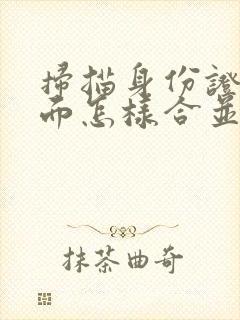 掃描身份證
而怎樣合並
抹茶曲奇